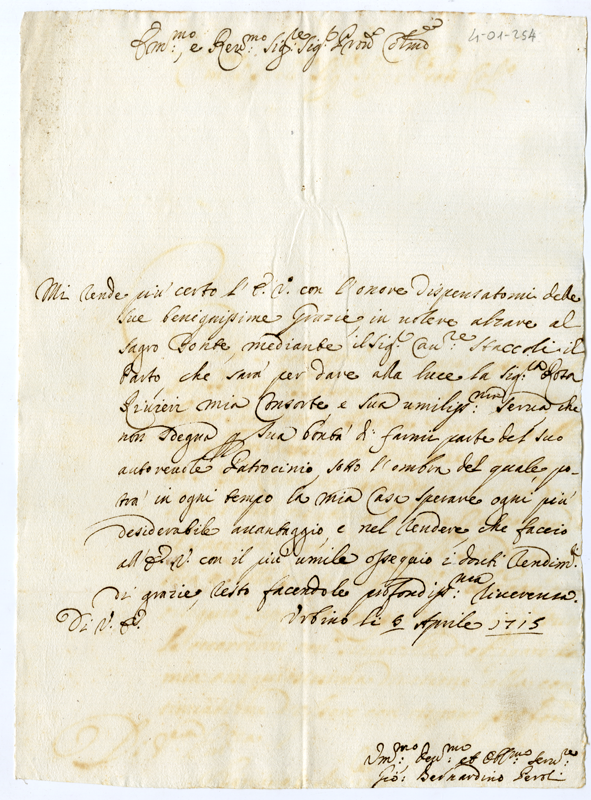 Em:mo, e Rev:mo Sig:re Sig:r Pron Colmo
4-01-254
Mi rende più certo l'E. V. con l'onore dispensatomi delle
sue benignissime Grazie in volere alzare al
sagro Fonte, mediante il Sig:r Cav:re Staccoli il
Parto che sarà per dare alla luce la Sig:ra
Rivieri mia Consorte, e sua umiliss:ma Serva che
non sdegna Sua bontà di farmi parte del suo
autorevole Patrocinio, sotto l'ombra del quale, po-
trà in ogni tempo la mia Casa sperare ogni più
desiderabile avantaggio e nel rendere che faccio
all'E. V. con il più umile ossequio i dovuti rendim:ti
di grazie, resto facendole profondiss:ma riverenza.
Di V. E. Urbino li 8 Aprile 1715
Um:mo dev:mo et Obl:mo Serv:re
Gio: Bernardino